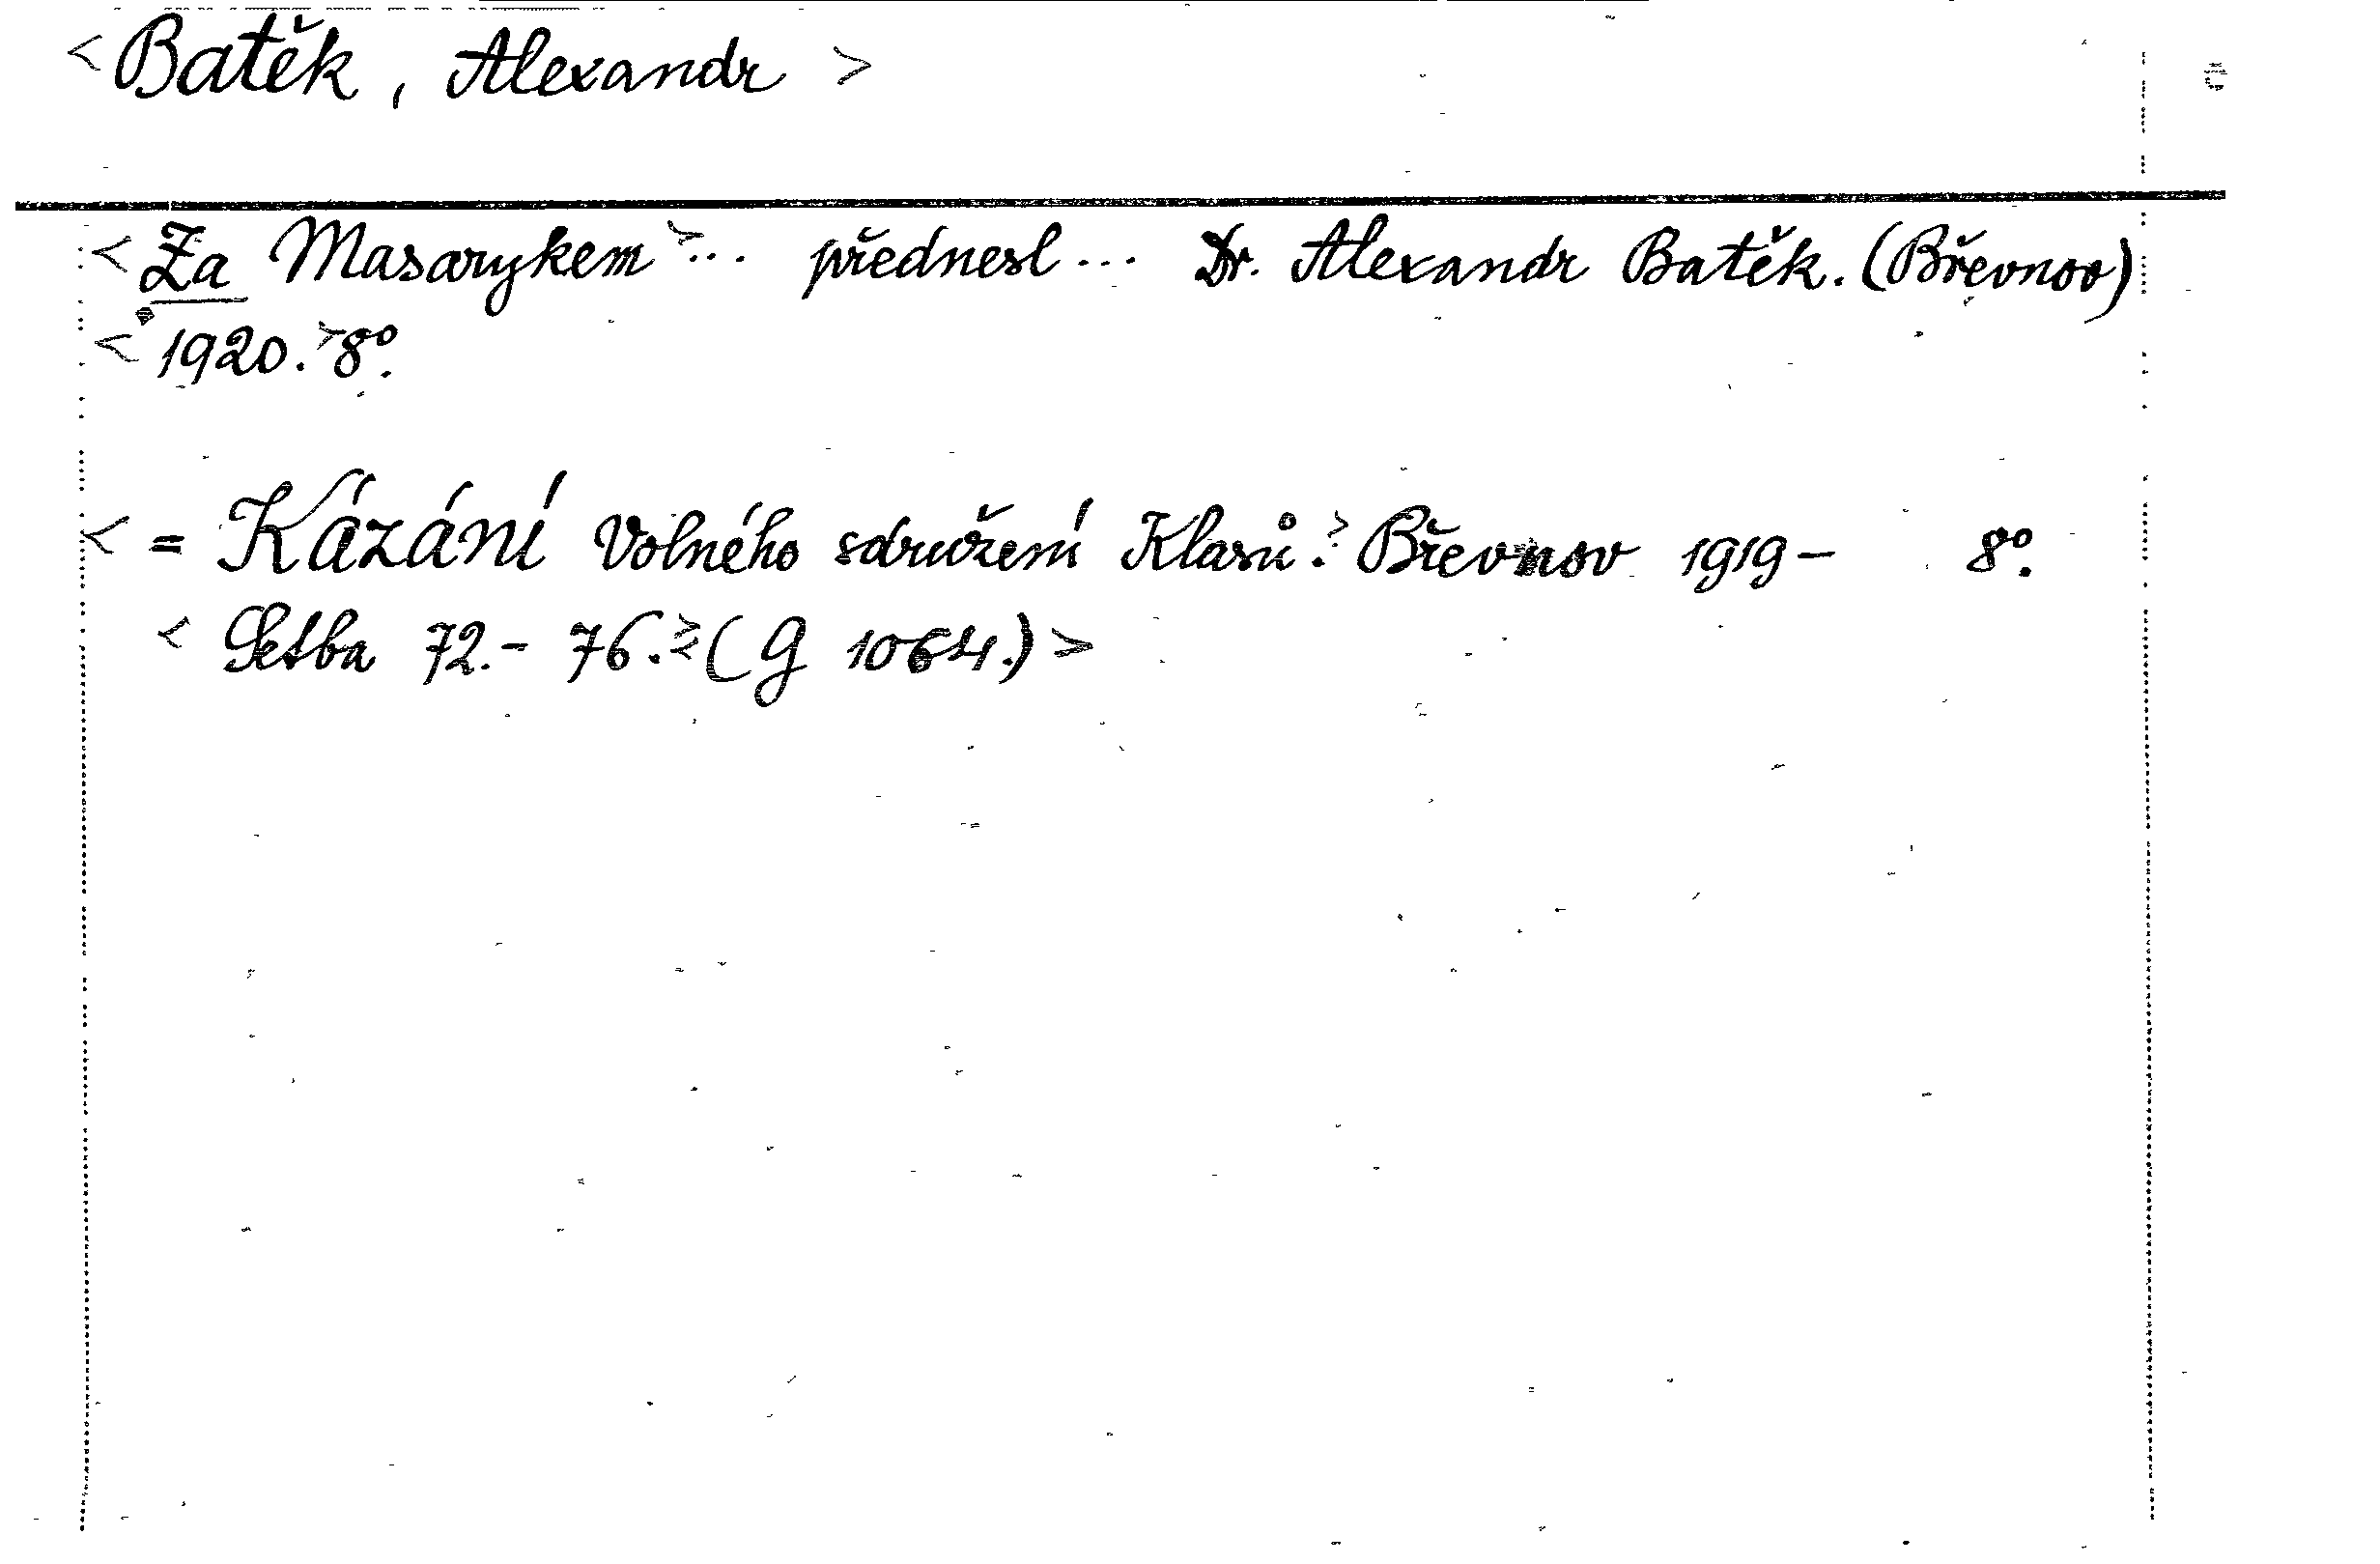 <Batěk, Alexandr>
č
<Za Masarykem>... přednesl... Dr. Alexandr Batěk. (Břevnov)
<1920.>8°.
<= Kázání Volného sdružení Klasů.> Břevnov 1919- 8°.
<Setba 72.- 76.><(G 1064.)>